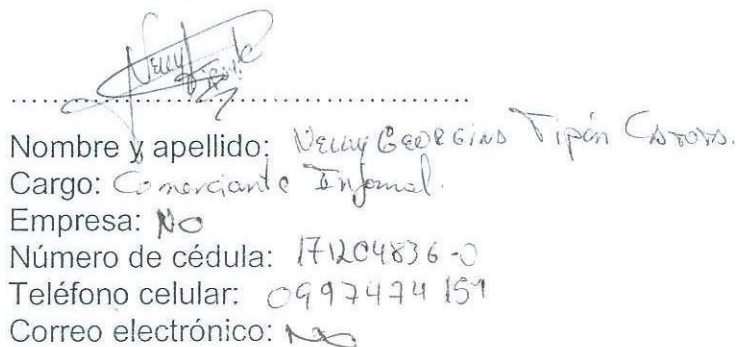 Nelly Tipán C
Nombre y apellido: Nelly Georgina Tipán
Cargo: Comerciante Informal.
Empresa: No
Número de cédula: 171204836-0
Teléfono celular: 0997474159
Correo electrónico: No